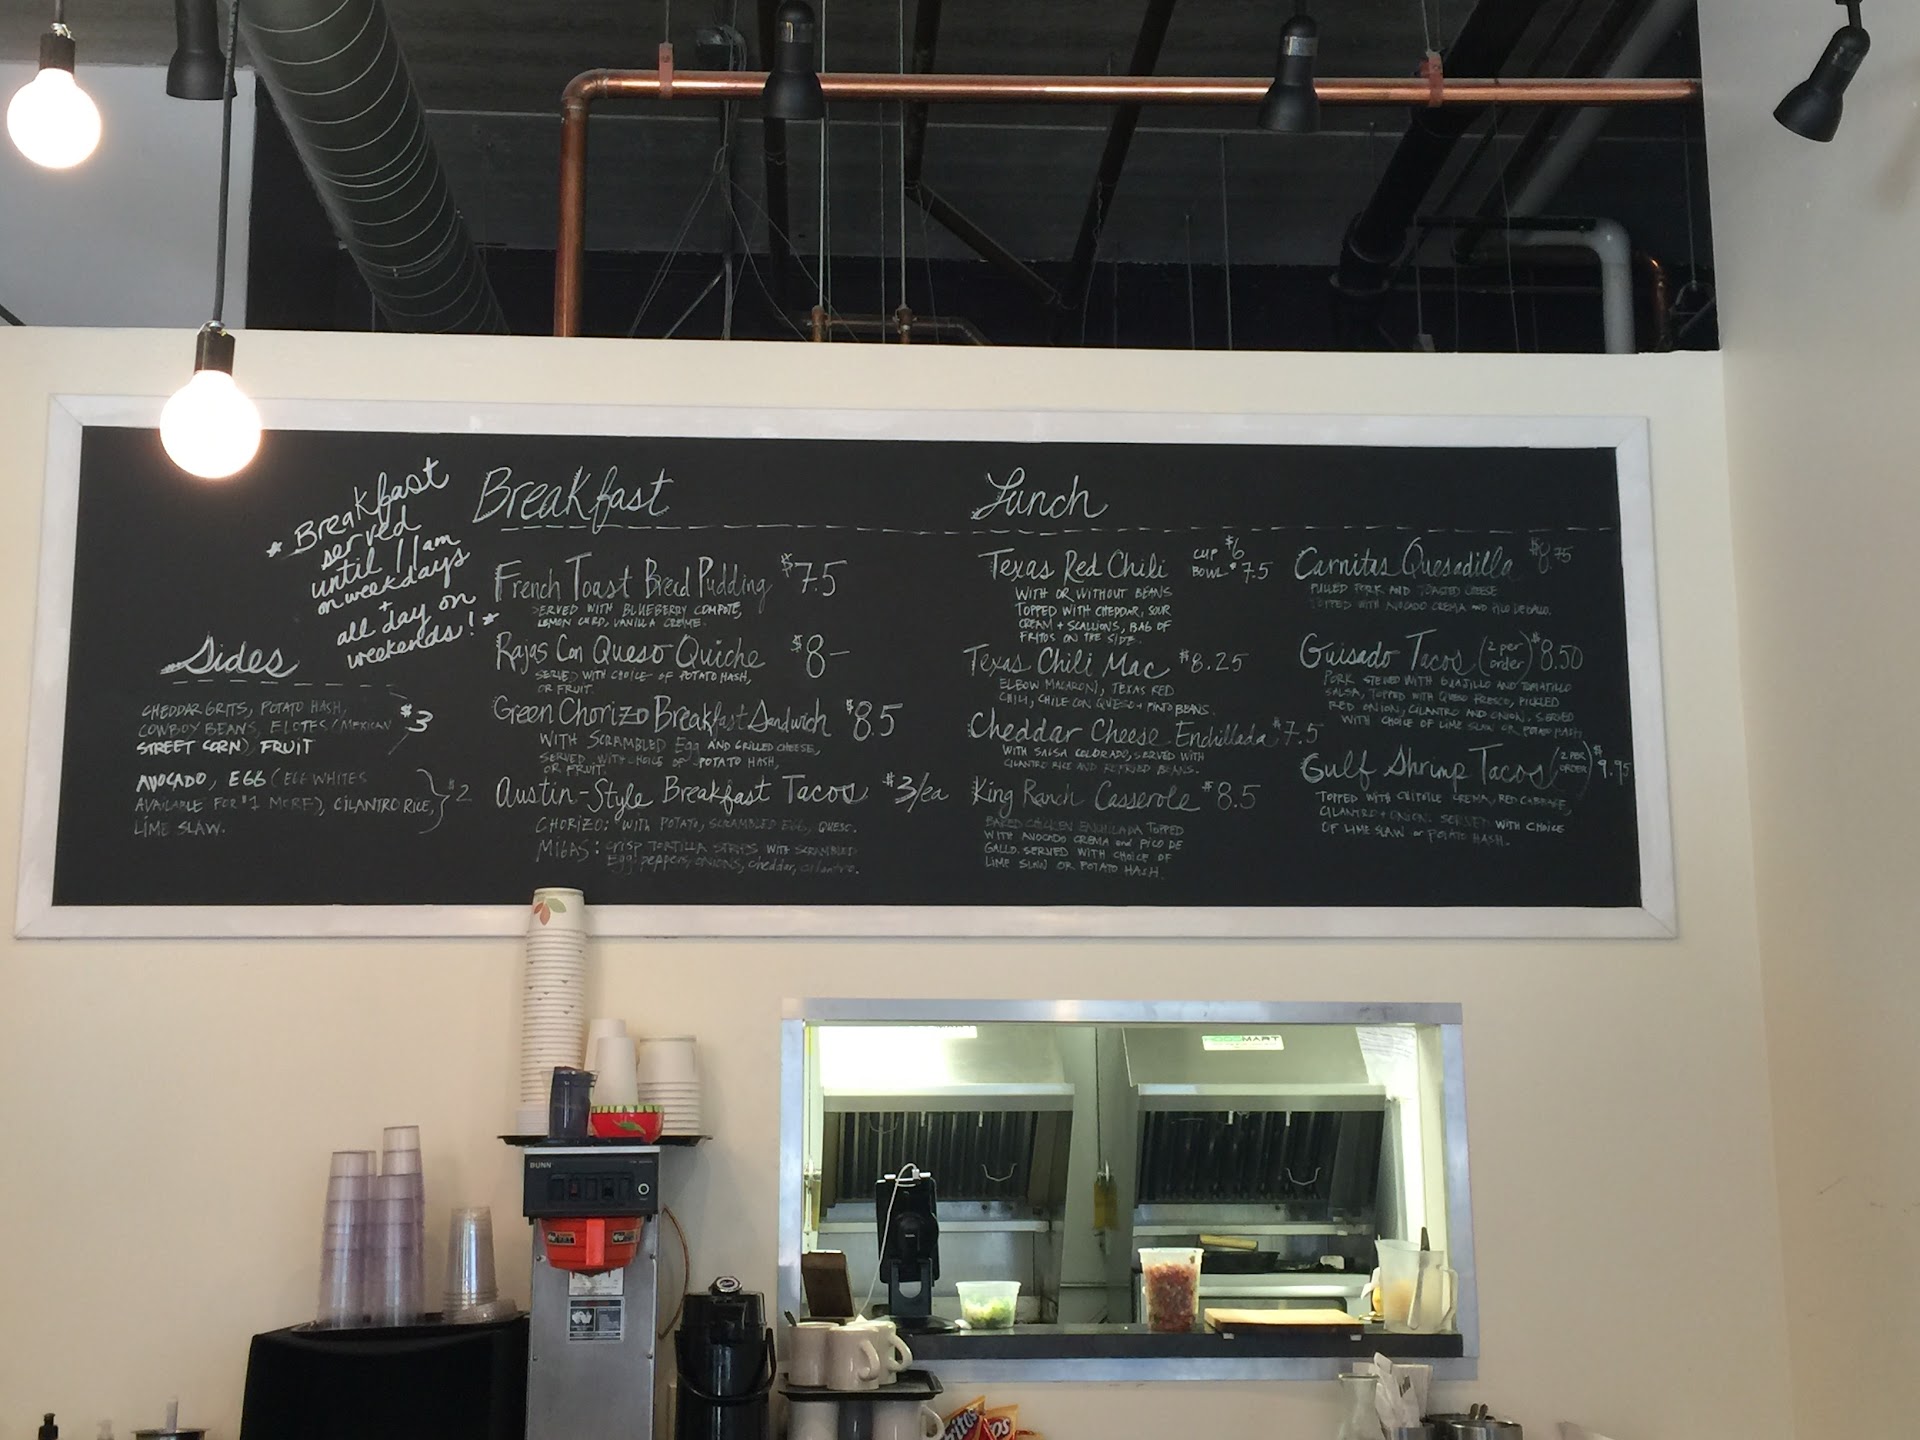 * Breakfast
served
until 11am
on weekdays
+
all day on
weekends! *
Sides
CHEDDAR GRITS, POTATO HASH,
COWBOY BEANS, ELOTES (MEXICAN
STREET CORN) FRUIT
$3
AVOCADO, EGG (EGG WHITES
AVAILABLE FOR $1 MORE), CILANTRO RICE,
LIME SLAW.
$2
Breakfast
French Toast Bread Pudding $7.5
SERVED WITH BLUEBERRY COMPOTE,
LEMON CURD, VANILLA CREME.
Rajas Con Queso Quiche $8-
SERVED WITH CHOICE OF POTATO HASH,
OR FRUIT.
Green Chorizo Breakfast Sandwich $8.5
WITH SCRAMBLED Egg AND GRILLED CHEESE,
SERVED WITH CHOICE OF POTATO HASH,
OR FRUIT.
Austin-Style Breakfast Tacos $3/ea
CHORIZO: WITH POTATO, SCRAMBLED EGG, QUESO.
MIGAS: CRISP TORTILLA STRIPS WITH SCRAMBLED
Egg, peppers, ONIONS, cheddar, cilantro.
Lunch
Texas Red Chili CUP $6
BOWL $7.5
WITH OR WITHOUT BEANS
TOPPED WITH CHEDDAR, SOUR
CREAM + SCALLIONS, BAG OF
FRITOS ON THE SIDE.
Texas Chili Mac $8.25
ELBOW MACARONI, TEXAS RED
CHILI, CHILE CON QUESO + PINTO BEANS.
Cheddar Cheese Enchilada $7.5
WITH SALSA COLORADO, SERVED WITH
CILANTRO RICE AND REFRIED BEANS.
King Ranch Casserole $8.5
BAKED CHICKEN ENCHILADA TOPPED
WITH AVOCADO CREMA AND PICO DE
GALLO. SERVED WITH CHOICE OF
LIME SLAW OR POTATO HASH.
Carnitas Quesadilla $8.75
PULLED PORK AND TOASTED CHEESE
TOPPED WITH AVOCADO CREMA AND PICO DE GALLO.
Guisado Tacos (2 per order) $8.50
PORK STEWED WITH GUAJILLO AND TOMATILLO
SALSA, TOPPED WITH QUESO FRESCO, PICKLED
RED ONION, CILANTRO AND ONION. SERVED
WITH CHOICE OF LIME SLAW OR POTATO HASH
Gulf Shrimp Tacos (2 PER ORDER) $9.95
TOPPED WITH CHIPOTLE CREMA, RED CABBAGE,
CILANTRO + ONION. SERVED WITH CHOICE
OF LIME SLAW or POTATO HASH.
HOODMART
BUNN